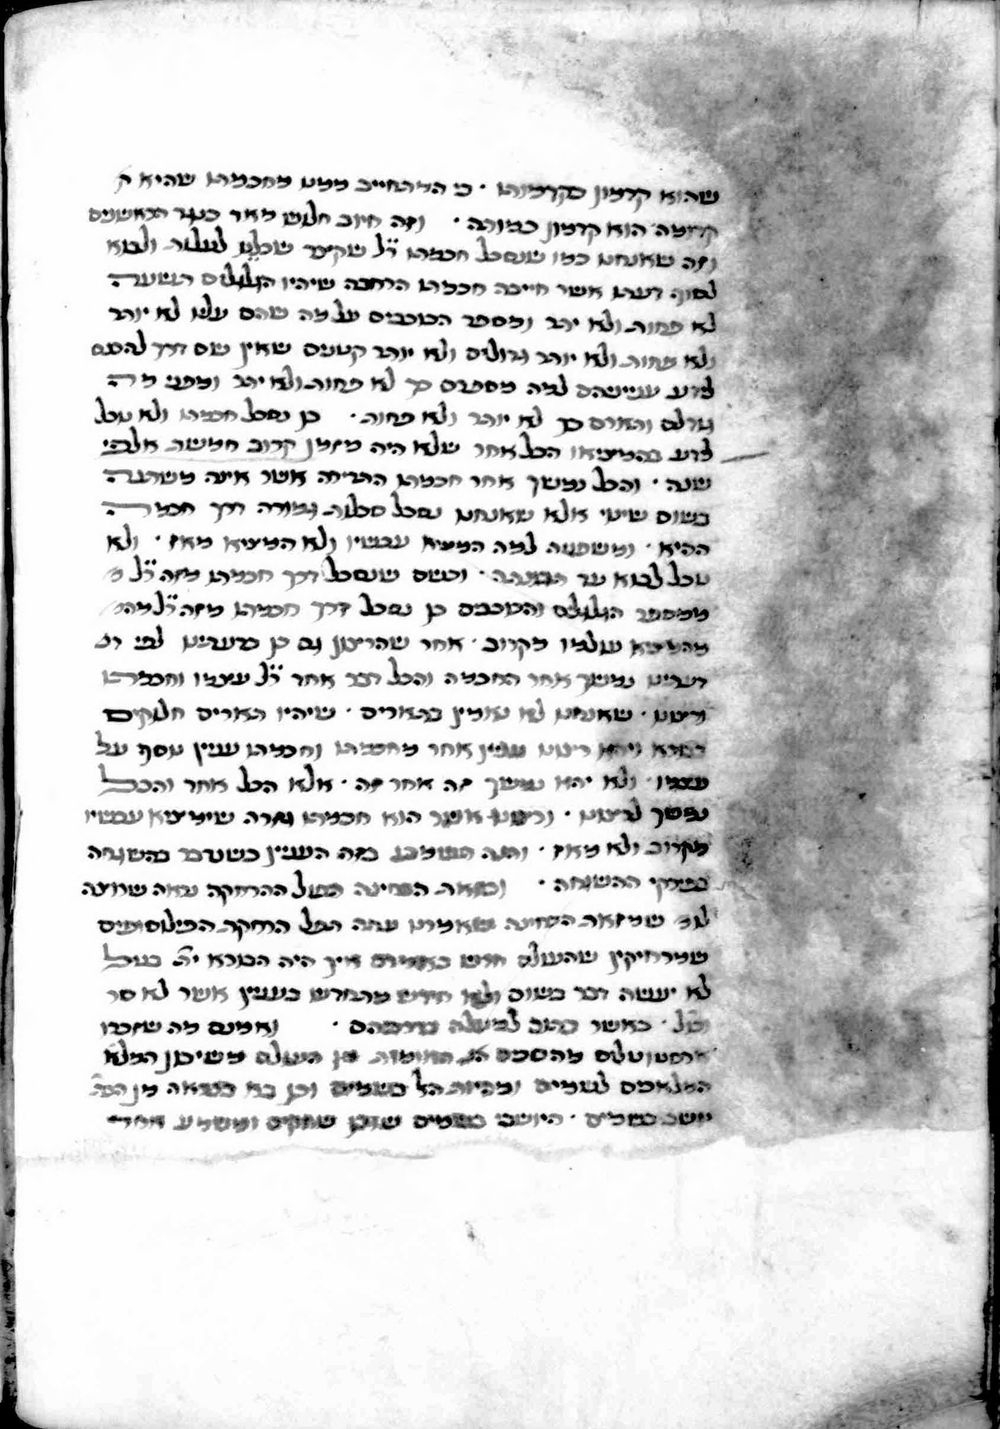 שהוא קדמון כקדמותו · כי המתחייב ממנו מחכמתו שהיא ק
קדומה הוא קדמון כמוהו · וזה חיוב חלוש מאד כנגד הראשונים
וזה שאנחנו כמו שנסכל חכמתו ר״ל שקיצר שכלנו לעלות ולבוא
לסוף דעתו אשר חייבה חכמתו הרחבה שיהיו הגלגלים תשעה
לא פחות ולא יתר ומספר הכוכבים על מה שהם עליו לא יותר
ולא פחות ולא יותר גדולים ולא יותר קטנים שאין שם דרך
לדע ענייניהם למה מספרם כך לא פחות ולא יתר ומפני מה
גודלם ותארם כך לא יותר ולא פחות · כן נסכל חכמתו ולא נוכל
לדע בהמציאו הכל אחר שלא היה מזמן קרוב חמשת אלפי
שנה · והכל נמשך אחר חכמתו התדירה אשר אינה משתנה
בשום שינוי אלא שאנחנו נסכל סכלות גמורה דרך חכמה
ההיא · ומשפטיה למה המציא עכשיו ולא המציא מאז · ולא
נוכל לבוא עד תכונתה · וכשם שנסכל דרך חכמתו מזה ר״ל
ממספר הגלגלים והכוכבים כן נסכל דרך חכמתו מזה ר״ל
מהמציא עולמו מקרוב · אחר שהרצון גם כן כדעתנו לפי
דעתנו נמשך אחר החכמה והכל דבר אחד ר״ל עצמו וחכמתו
ורצונו · שאנחנו לא נאמין בתארים · שיהיו תארים חלוקים
בבורא ויהא רצונו עניין אחר מחכמתו וחכמתו עניין נוסף על
עצמו · ולא יהא נמשך זה אחר זה · אלא הכל אחד והכל
נמשך לרצונו · ורצונו אשר הוא חכמתו גזרה שימציא עכשיו
מקרוב ולא מאז · והנה תשמע בזה העניין כשנדבר בהשגחה
בפרקי ההשגחה · וכזאת הטענה תפול ההרחקה
שמזאת הטענה שאמרנו עתה תפול הרחקת הפילוסופים
שמרחיקין שהעולם חדש באמרם איך היה הבורא ית׳ בטל
לא יעשה דבר בשום ולא חידש מתחדש בעניין אשר לא סר
· כאשר כתוב למעלה בדבריהם · ואמנם מה שזכרו
מהסכמת האומות מן העולם משיכון המלא
המלאכים לשמים ומהיות הל בשמים וכן בא בנבואה מן
יושב בשמים · היושבי בשמים שוכן שחקים ומשמע